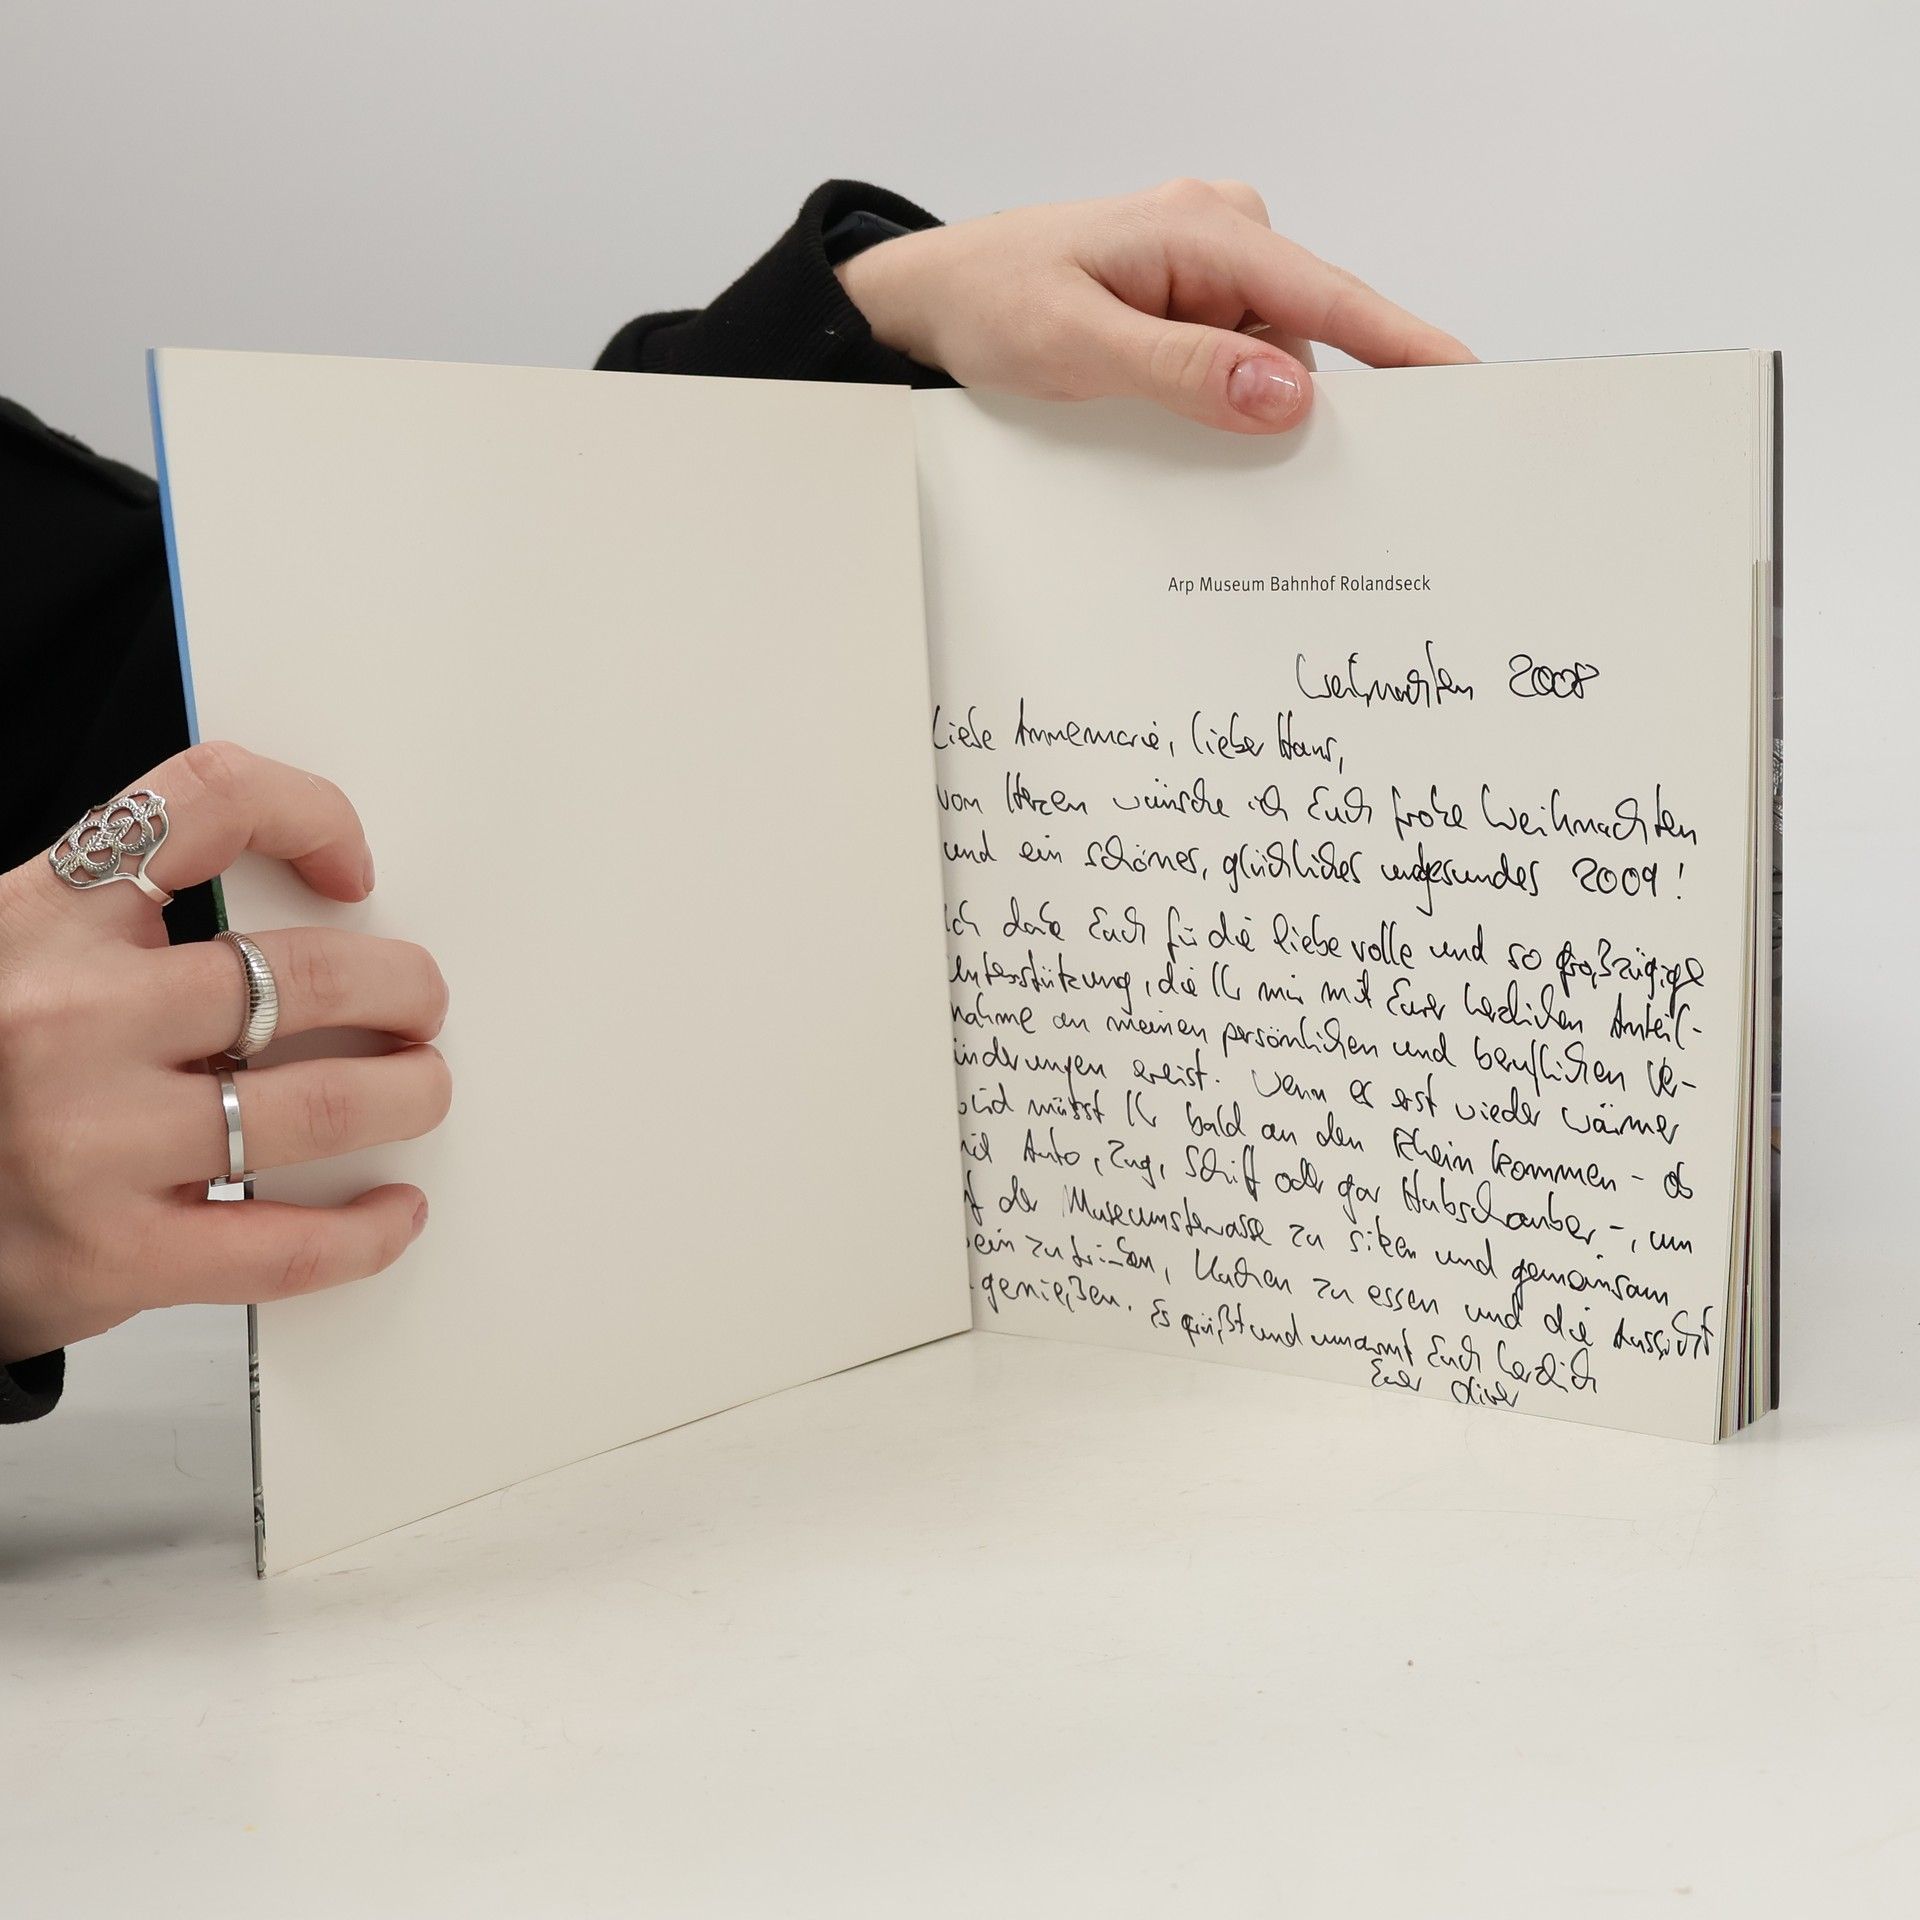 Arp Museum Bahnhof Rolandseck
Weihnachten 2008
Liebe Annemarie, lieber Hans,
von Herzen wünsche ich Euch frohe Weihnachten
und ein schönes, glückliches und gesundes 2009!
Ich danke Euch für die liebevolle und so großzügige
Unterstützung, die Ihr mir mit Eurer herzlichen Anteil-
nahme an meinen persönlichen und beruflichen Ve-
änderungen erweist. Wenn es erst wieder wärmer
wird müsst Ihr bald an den Rhein kommen - ob
mit Auto, Zug, Schiff oder gar Hubschrauber -, um
auf der Museumsterrasse zu sitzen und gemeinsam
Wein zu trinken, Kuchen zu essen und die Aussicht
genießen. Es grüßt und umarmt Euch herzlich
Euer Oliver